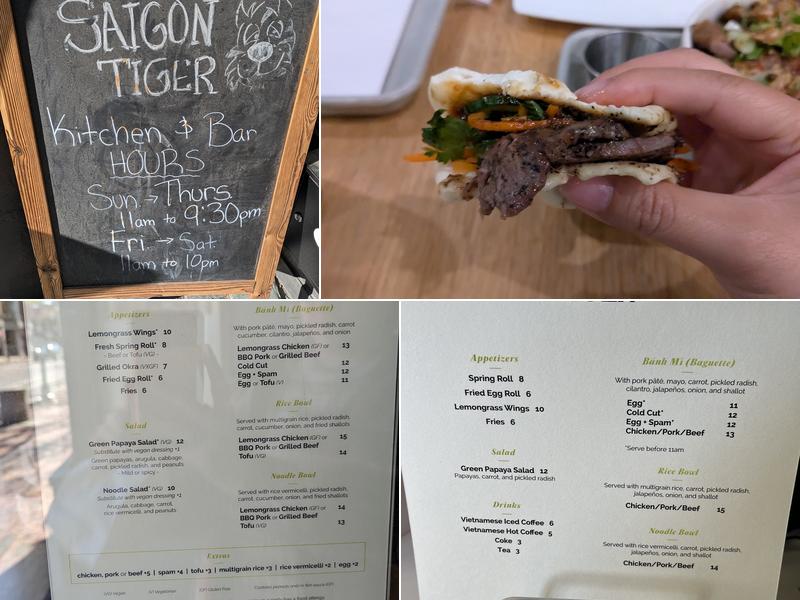 SAIGON
TIGER
Kitchen & Bar
HOURS
Sun → Thurs.
11am to 9:30pm
Fri → Sat
11am to 10pm
Appetizers
Lemongrass Wings* 10
Fresh Spring Roll* 8
- Beef or Tofu (VG) -
Grilled Okra (VXGF) 7
Fried Egg Roll* 6
Fries 6
Salad
Green Papaya Salad* (VG) 12
Substitute with vegan dressing +1
Green papayas, arugula, cabbage,
carrot, pickled radish, and peanuts
- Mild or spicy -
Noodle Salad* (VG) 10
Substitute with vegan dressing +1
Arugula, cabbage, carrot,
rice vermicelli, and peanuts
Bánh Mì (Baguette)
With pork pâté, mayo, pickled radish, carrot
cucumber, cilantro, jalapeños, and onion
Lemongrass Chicken (GF) or 13
BBQ Pork or Grilled Beef
Cold Cut 12
Egg + Spam 12
Egg or Tofu (V) 11
Rice Bowl
Served with multigrain rice, pickled radish,
carrot, cucumber, onion, and fried shallots
Lemongrass Chicken (GF) or 15
BBQ Pork or Grilled Beef
Tofu (VG) 14
Noodle Bowl
Served with rice vermicelli, pickled radish,
carrot, cucumber, onion, and fried shallots
Lemongrass Chicken (GF) or 14
BBQ Pork or Grilled Beef
Tofu (VG) 13
Extras
chicken, pork or beef +5 | spam +4 | tofu +3 | multigrain rice +3 | rice vermicelli +2 | egg +2
(VG) Vegan (V) Vegetarian (GF) Gluten Free *Contains peanuts and/or fish sauce (GF)
Appetizers
Spring Roll 8
Fried Egg Roll 6
Lemongrass Wings 10
Fries 6
Salad
Green Papaya Salad 12
Papayas, carrot, and pickled radish
Drinks
Vietnamese Iced Coffee 6
Vietnamese Hot Coffee 5
Coke 3
Tea 3
Bánh Mì (Baguette)
With pork pâté, mayo, carrot, pickled radish,
cilantro, jalapeños, onion, and shallot
Egg* 11
Cold Cut* 12
Egg + Spam* 12
Chicken/Pork/Beef 13
*Serve before 11am
Rice Bowl
Served with multigrain rice, carrot, pickled radish,
jalapeños, onion, and shallot
Chicken/Pork/Beef 15
Noodle Bowl
Served with rice vermicelli, carrot, pickled radish,
jalapeños, onion, and shallot
Chicken/Pork/Beef 14